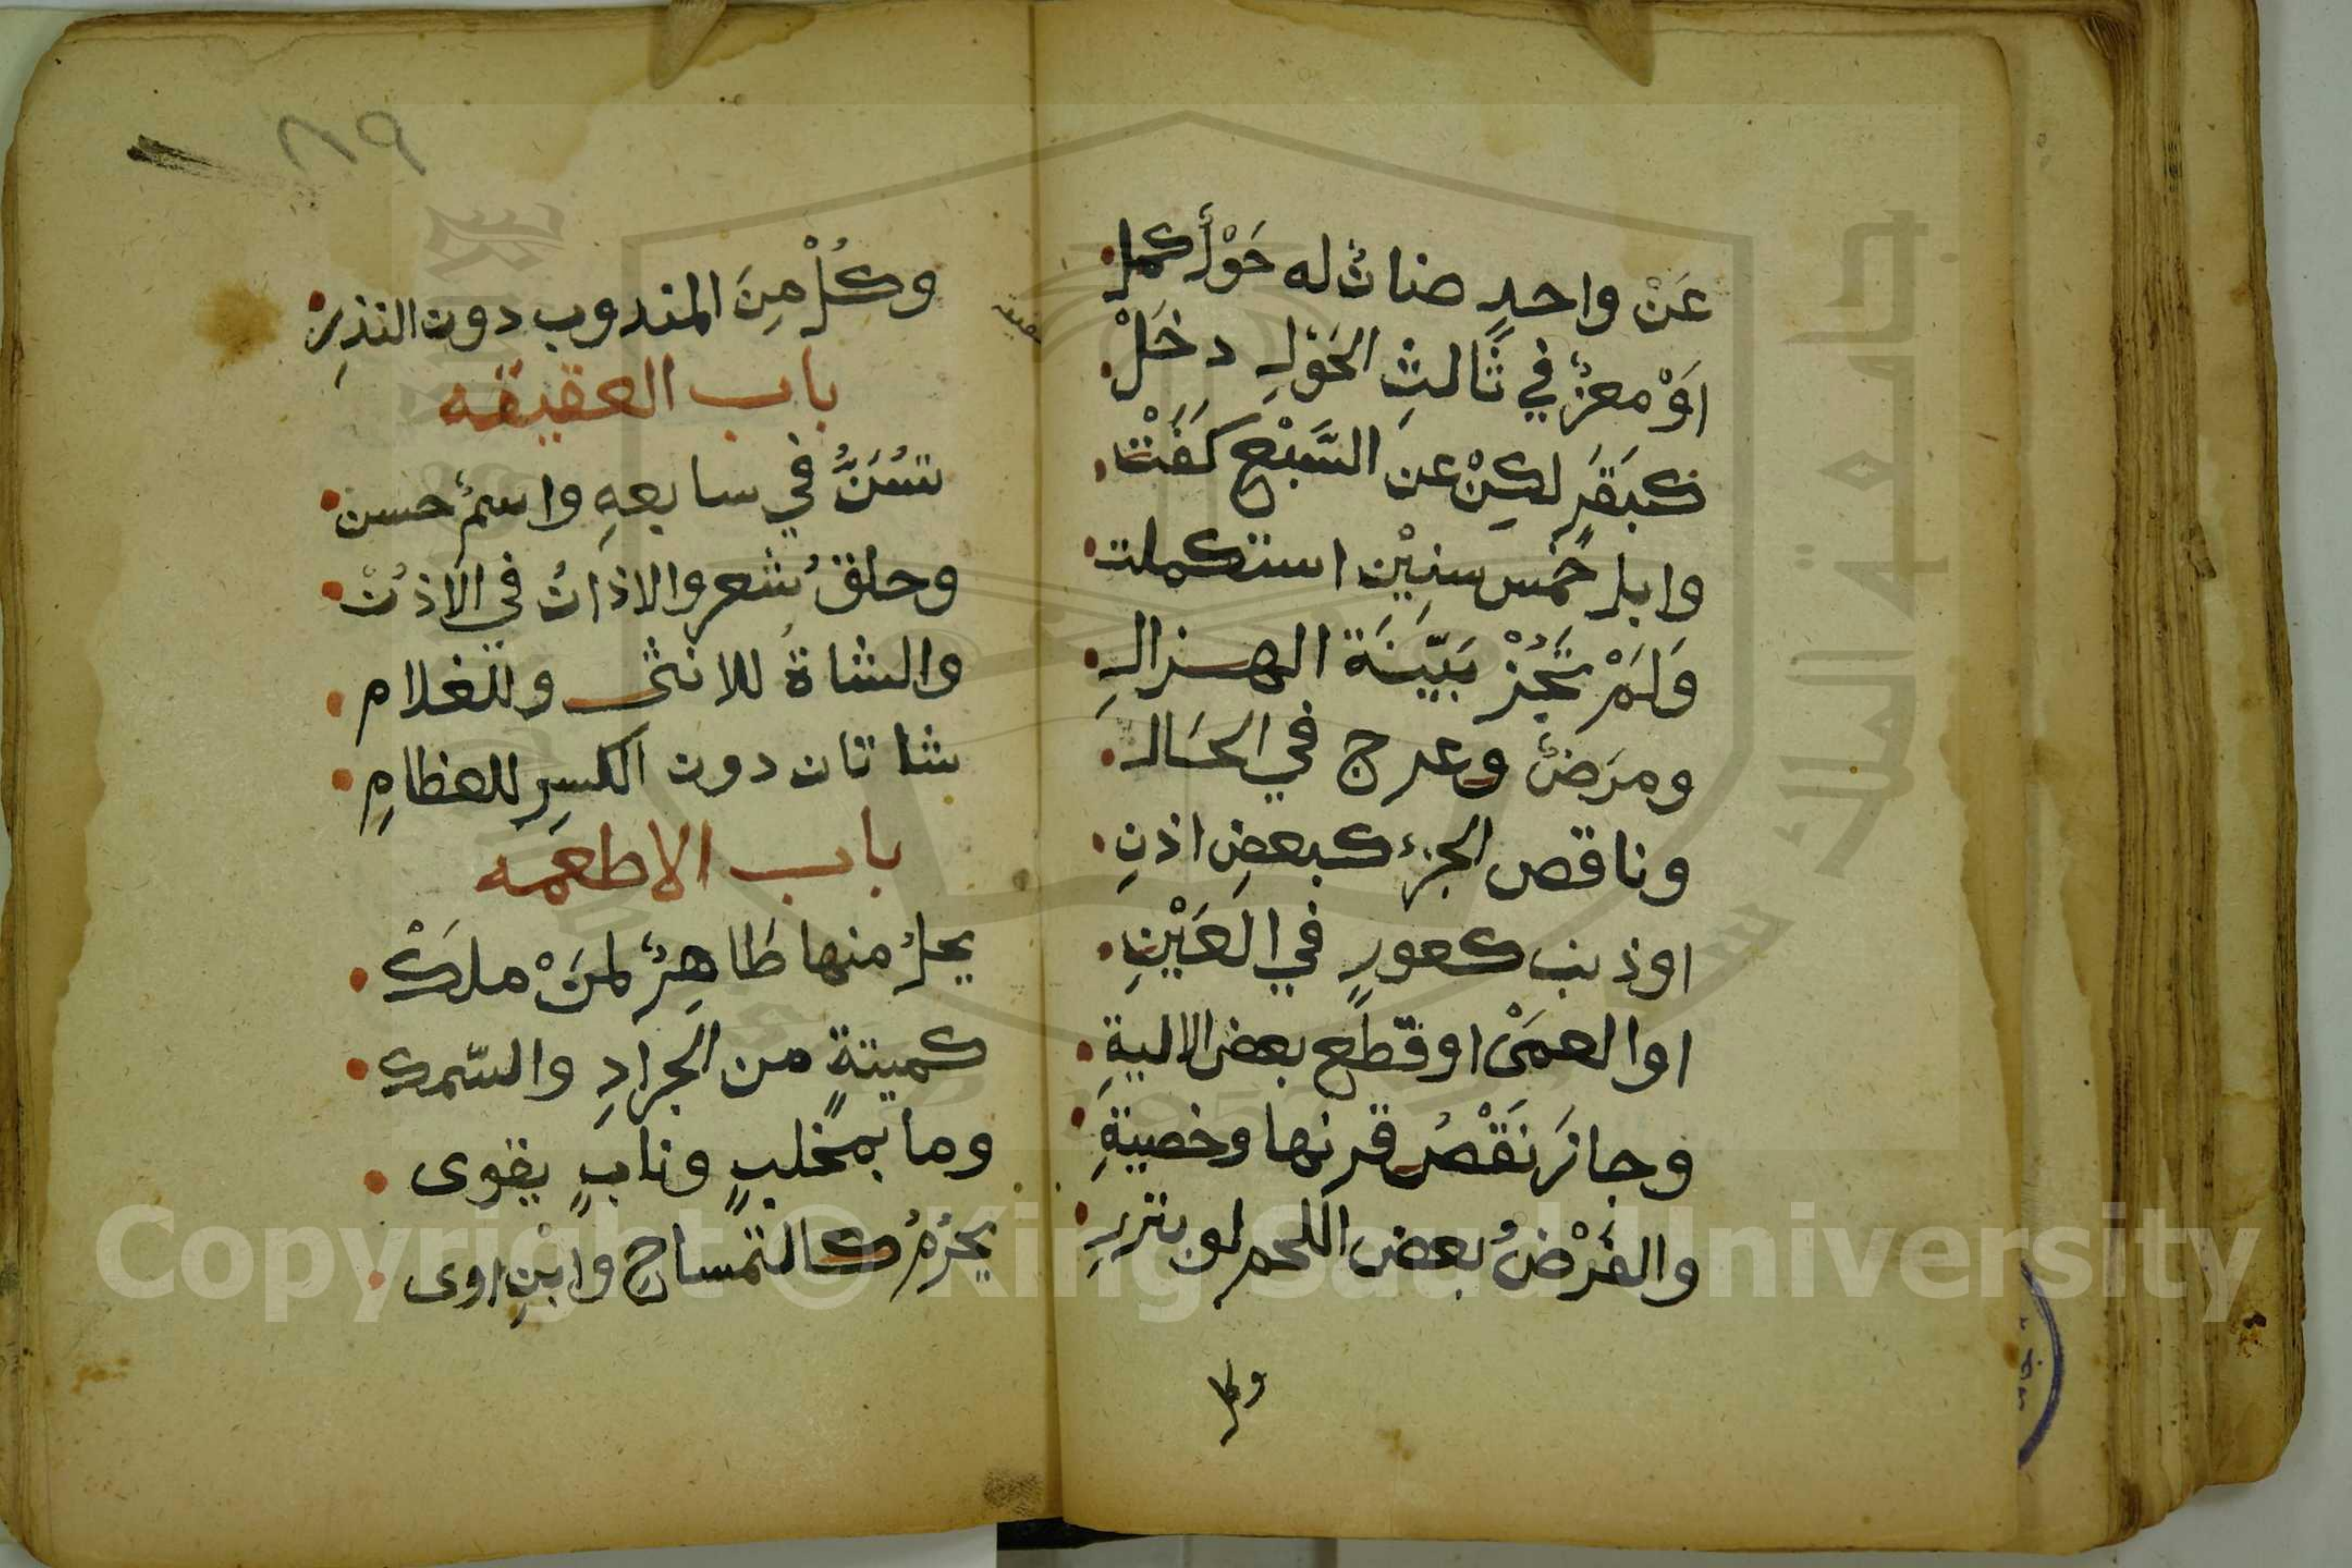 عَنْ واحدٍ ضانٌ له حَوْلٌ كمل
اَوْ معزٌ في ثَالثِ الحَوْلِ دخَلْ
كبَقَرٍ لكِنْ عن السَّبْعِ كَفَتْ
وابل خمس سنِيْن استكملت
وَلَمْ تَجُزْ بَيِّنَة الهزال
ومرَضٌ وعرج في الحَال
وناقص الجزء كبعضِ اذنِ
اوذنب كعورٍ في العَيْنِ
اوالعمَىْ اوقطع بعض الاليةِ
وجازَ نَقْصُ قرنها وخصيةِ
والفَرْضُ بعض اللحم لو بنزرِ
وكل
٨٩
وكُلْ مِنَ المندوب دون النذرِ
باب العقيقه
تسُنَّ في سابعهِ واسمٌ حسن
وحلقُ شعر والاذانُ في الاذنْ
والشاةُ للانثى وللغلام
شاتان دون الكسرِ للعظامِ
باب الاطعمه
يحلُ منها طَاهِرٌ لمَنْ ملَكْ
كميتةٍ من الجرادِ والسّمك
وما بمخلبٍ ونابٍ يقوى
يحرُمُ كالتمساح وابْنِ اوى
Copyright © King Saud University
جامعة الملك سعود
1957